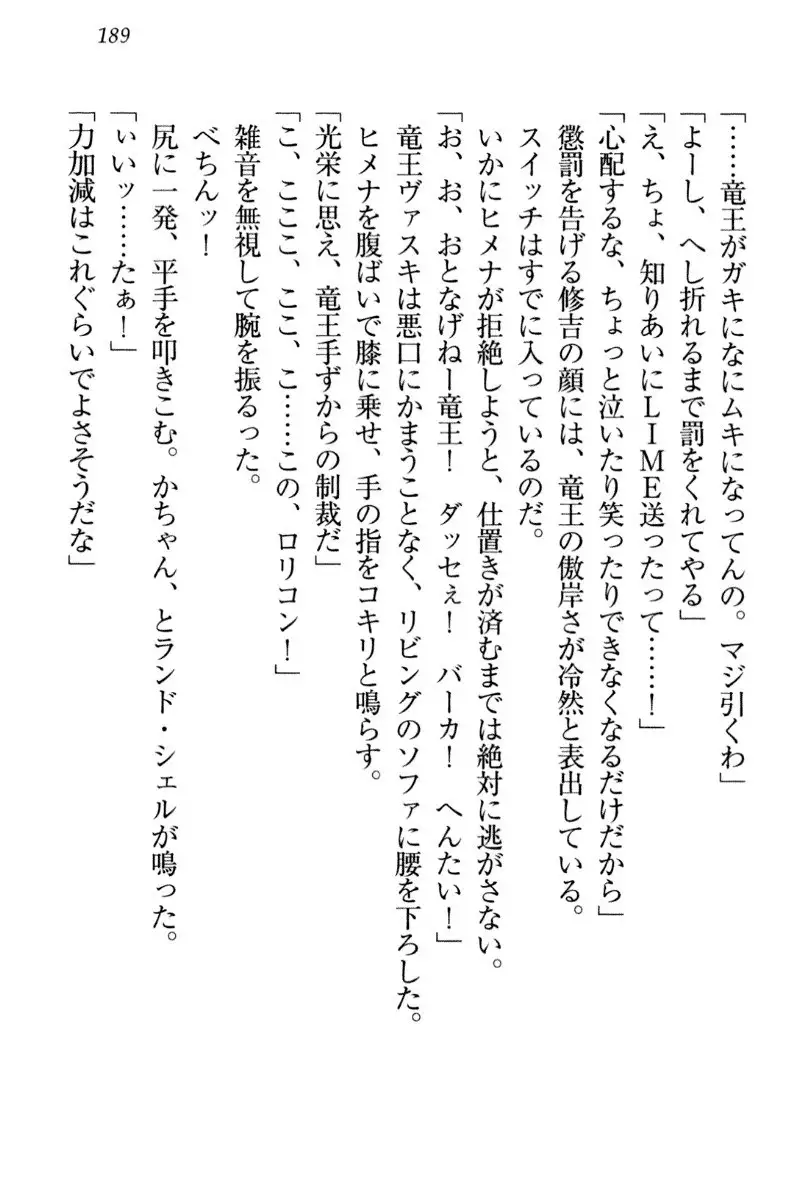 189
「……竜王がガキになにムキになってんの。マジ引くわ」
「よーし、へし折れるまで罰をくれてやる」
「え、ちょ、知りあいにＬＩＭＥ送ったって……！」
「心配するな、ちょっと泣いたり笑ったりできなくなるだけだから」
懲罰を告げる修吉の顔には、竜王の傲岸さが冷然と表出している。
スイッチはすでに入っているのだ。
いかにヒメナが拒絶しようと、仕置きが済むまでは絶対に逃がさない。
「お、お、おとなげねー竜王！　ダッセぇ！　バーカ！　へんたい！」
竜王ヴァスキは悪口にかまうことなく、リビングのソファに腰を下ろした。
ヒメナを腹ばいで膝に乗せ、手の指をコキリと鳴らす。
「光栄に思え、竜王手ずからの制裁だ」
「こ、こここ、ここ、こ……この、ロリコン！」
雑音を無視して腕を振るった。
べちんッ！
尻に一発、平手を叩きこむ。かちゃん、とランド・シェルが鳴った。
「ぃいッ……たぁ！」
「力加減はこれぐらいでよさそうだな」